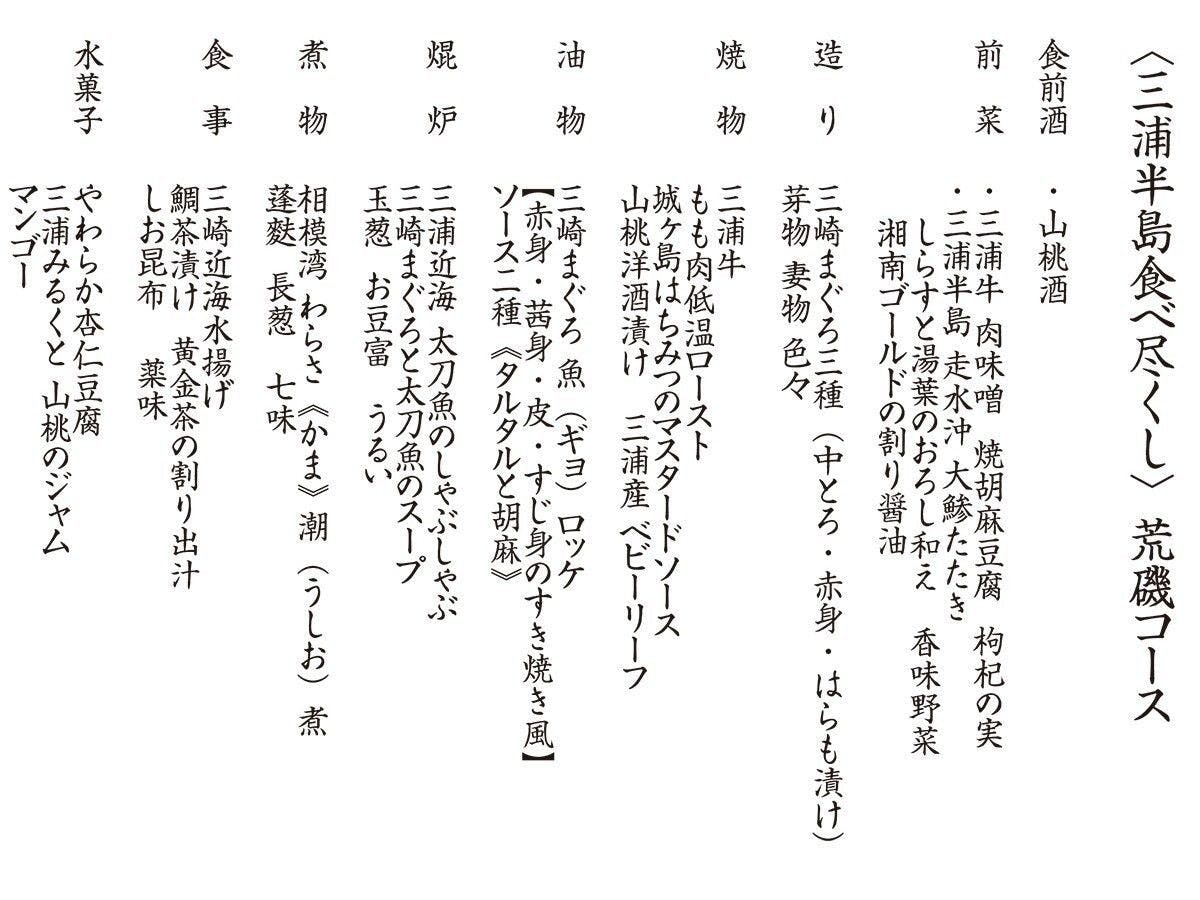 〈三浦半島食べ尽くし〉 荒磯コース
食前酒 ・山桃酒
前菜 ・三浦牛 肉味噌 焼胡麻豆腐 枸杞の実
・三浦半島 走水沖 大鯵たたき
しらすと湯葉のおろし和え 香味野菜
湘南ゴールドの割り醤油
造り 三崎まぐろ三種(中とろ・赤身・はらも漬け)
芽物 妻物 色々
焼物 三浦牛
もも肉低温ロースト
城ヶ島はちみつのマスタードソース
山桃洋酒漬け 三浦産 ベビーリーフ
油物 三崎まぐろ 魚(ギョ)ロッケ
【赤身・茜身・皮・すじ身のすき焼き風】
ソース二種《タルタルと胡麻》
焜炉 三浦近海 太刀魚のしゃぶしゃぶ
三崎まぐろと太刀魚のスープ
玉葱 お豆富 うるい
煮物 相模湾 わらさ《かま》潮(うしお)煮
蓬麩 長葱 七味
食事 三崎近海水揚げ
鯛茶漬け 黄金茶の割り出汁
しお昆布 薬味
水菓子 やわらか杏仁豆腐
三浦みるくと 山桃のジャム
マンゴー